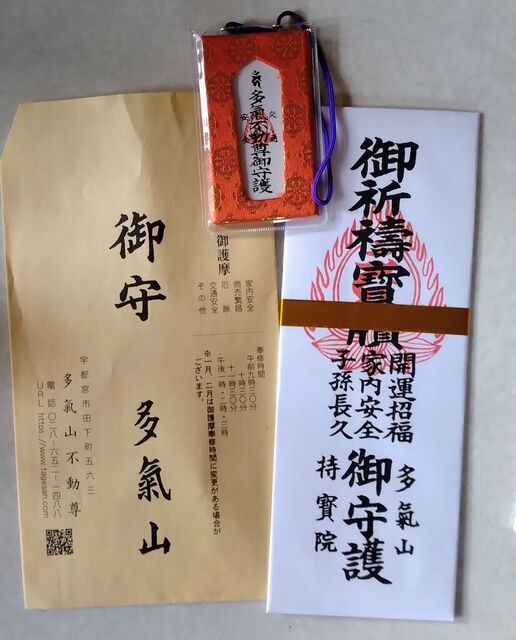 多氣不動尊御守護
交通
安全
御祈禱寶牘
開運招福
家内安全
子孫長久
御守護
多氣山
持寶院
御守
多氣山
御護摩
家内安全
商売繁昌
厄除
交通安全
その他
奉修時間
午前九時三〇分
十一時三〇分
午後一時・二時・三時
※一月、二月は御護摩奉修時間に変更がある場合が
ございます。
宇都宮市田下町五六三
多氣山不動尊
電話〇二八-六五二-一四八八
URL https://www.tagesan.com